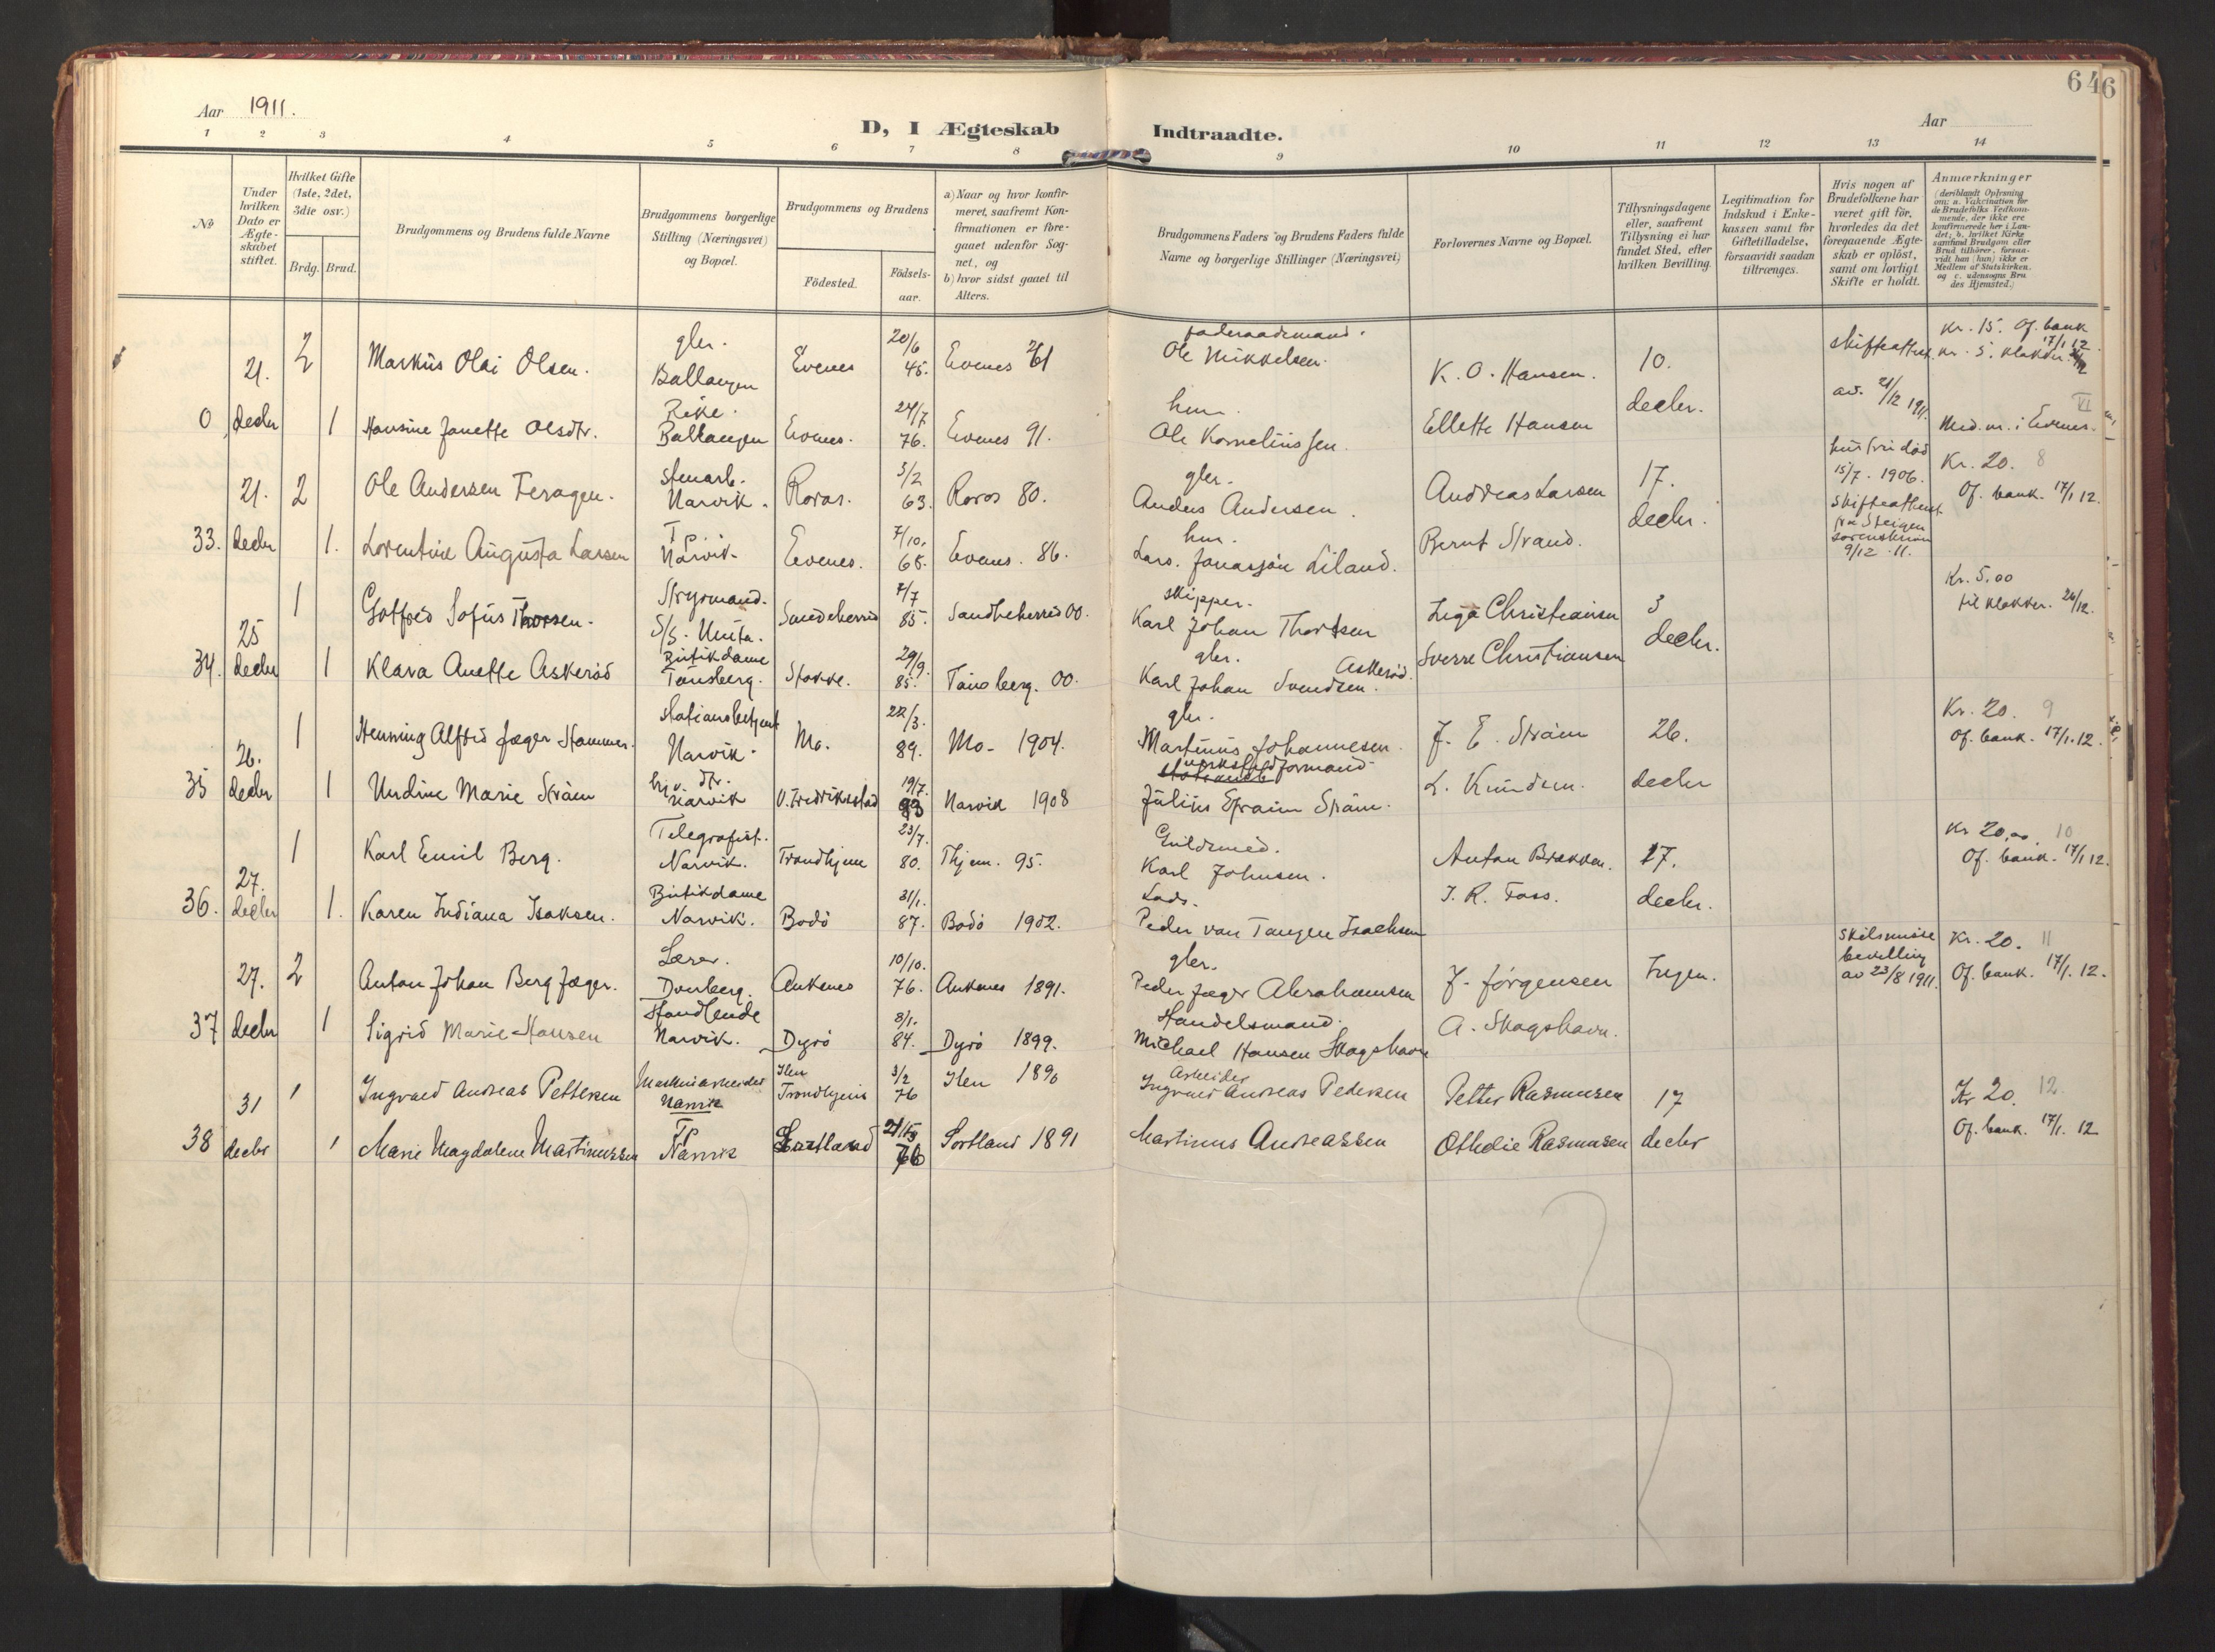 646
Aar 1911.
D, I Ægteskab Indtraadte.
Aar
1 2 3 4 5 6 7 8 9 10 11 12 13 14
No
Under hvilken Dato er Ægteskabet stiftet.
Hvilket Gifte (1ste, 2det, 3die osv.)
Brdg. Brud.
Brudgommens og Brudens fulde Navne
Brudgommens borgerlige Stilling (Næringsvei) og Bopæl.
Brudgommens og Brudens
Födested. Födsels-aar.
a) Naar og hvor konfirmeret, saafremt Konfirmationen er foregaaet udenfor Sognet, og
b) hvor sidst gaaet til Alters.
Brudgommens Faders og Brudens Faders fulde Navne og borgerlige Stillinger (Næringsvei)
Forlovernes Navne og Bopæl.
Tillysningsdagene eller, saafremt Tillysning ei har fundet Sted, efter hvilken Bevilling.
Legitimation for Indskud i Enkekassen samt för Giftetilladelse, forsaavidt saadan tiltrænges.
Hvis nogen af Brudefolkene har været gift för, hvorledes da det foregaaende Ægteskab er oplöst, samt om lovligt Skifte er holdt.
Anmærkninger
(deriblandt Oplysning om: a. Vakcination for de Brudefolks Vedkommende, der ikke ere konfirmerede her i Landet; b. hvilket Kirkesamfund Brudgom eller Brud tilhörer, forsaavidt han (hun) ikke er Medlem af Statskirken, og c. udensogns Brudes Hjemsted.)
21. 2 Markus Olai Olsen. gler. Ballangen Evenes 20/6 45. Evenes 61 Ole Mikkelsen. K. O. Hansen. 10. skifteattest Kr. 15. Of. bank 17/1 12.
0 decbr 1 Hansine Janette Olsdtr. Ballangen Evenes. 24/7 76. Evenes 91. Ole Korneliussen. Ellette Hansen decbr. av. 21/12 1911. Med. nr. i Evenes.
21. 2 Ole Andersen Feragen. Stenarb. Narvik. Röros. 5/2 63. Röros 80. gler. Anders Andersen. Andreas Larsen 17. 15/7. 1906. Skifteattest Kr. 20. 8 Of. bank. 17/1 12.
33. decbr 1. Lorentine Augusta Larsen Narvik. Evenes. 7/10. 68. Evenes. 86. Lars. Jonassön Liland. Bernt Strand. decbr. fra Steigen sorenskriver 9/12. 11.
25 1 Gotfred Sofus Thorsen. Styrmand. S/S. Unita. Sandeherred 7/7 85. Sandeherred 00. skipper. Karl Johan Thorsen Christiansen 3 Kr. 5,00 til klokker. 24/12.
34. decbr 1 Klara Anette Askeröd Butikdame Tönsberg. Stokke. 29/9. 85. Tönsberg. 00. gler. Karl Johan Svendsen Askeröd. Sverre Christiansen decbr.
26. 1 Henning Alfred Jæger Hammer. Stationsbetjent Narvik. Mo. 22/3. 89. Mo. 1904. gler. Martinus Johannesen. J. E. Ström 26. Kr. 20. 9 Of. bank. 17/1. 12.
35 decbr 1 Undine Marie Ström Narvik V. Fredrikstad 19/7. 93 Narvik 1908 verkstedformand Julius Efraim Ström. L. Knudsen. decbr
27. 1 Karl Emil Berg. Telegrafist. Narvik. Trondhjem 23/7. 80. Thjem. 95. Guldsmed. Karl Johnsen. Anton Brækken. 17. Kr 20,00 10 Of. bank. 17/1 12.
36. decbr 1. Karen Indiana Isaksen. Butikdame Narvik. Bodö 31/1. 87. Bodö 1902. Lods. Peder von Tangen Isachsen I. R. Foss. decbr.
27. 2 Anton Johan Berg Jæger. Lærer. Donberg. Ankenes 10/10. 76. Ankenes 1891. gler. Peder Jæger Abrahamsen J. Jörgensen Ingen. Skilsmisse bevilling av 23/8 1911. Kr. 20. 11 Of. bank. 17/1. 12.
37 decbr 1 Sigrid Marie Hansen Handlende Narvik. Dyrö 8/1. 84. Dyrö 1899. Handelsmand. Michael Hansen Skogshavn A. Skogshavn.
31 1 Ingvald Andreas Pettersen Maskinarbeider Narvik Ilen Trondhjem 3/2 76 Ilen 1890 Arbeider Ingvald Andreas Pedersen Petter Rasmussen 17 Kr 20. 12. Of. bank. 17/1. 12
38 decbr 1 Marie Magdalene Martinussen Tp Narvik Sortland 76 Sortland 1891 Martinus Andreassen Othelie Rasmussen decbr